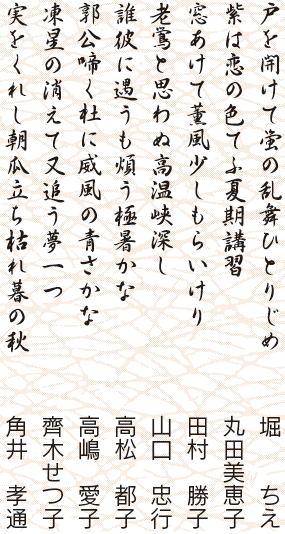 戸を開けて蛍の乱舞ひとりじめ 堀 ちえ
紫は恋の色てふ夏期講習 丸田美恵子
窓あけて薫風少しもらいけり 田村 勝子
老鶯と思わぬ高温峡深し 山口 忠行
誰彼に遇うも煩う極暑かな 高松 都子
郭公啼く杜に威風の青さかな 高嶋 愛子
凍星の消えて又追う夢一つ 齊木せつ子
実をくれし朝瓜立ち枯れ暮の秋 角井 孝通